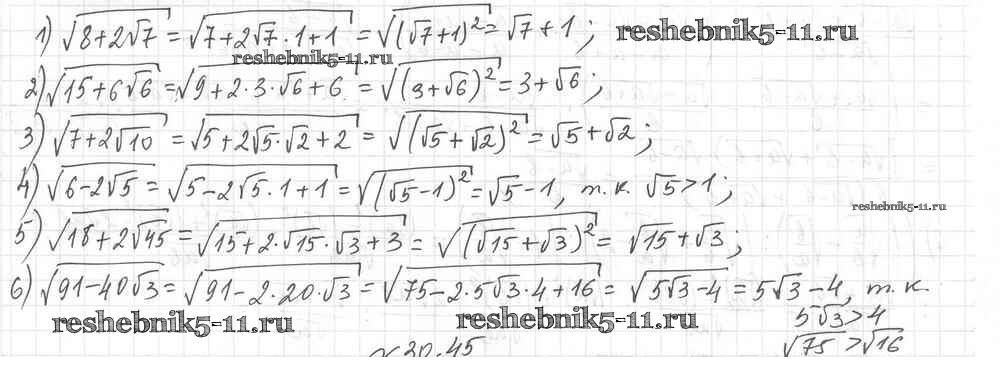 1) √(8+2√7) = √(7+2√7·1+1) = √((√7+1)²) = √7+1; reshebnik5-11.ru
reshebnik5-11.ru
2) √(15+6√6) = √(9+2·3·√6+6) = √((3+√6)²) = 3+√6;
3) √(7+2√10) = √(5+2√5·√2+2) = √((√5+√2)²) = √5+√2;
4) √(6-2√5) = √(5-2√5·1+1) = √((√5-1)²) = √5-1, т.к. √5>1;
reshebnik5-11.ru
5) √(18+2√45) = √(15+2·√15·√3+3) = √((√15+√3)²) = √15+√3;
6) √(91-40√3) = √(91-2·20·√3) = √(75-2·5√3·4+16) = √(5√3-4) = 5√3-4, т.к.
reshebnik5-11.ru reshebnik5-11.ru 5√3>4
√75>√16
30.45